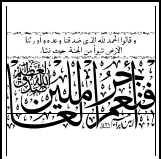 و قالوا الحمد لله الذى صدقنا وعده و اورثنا
الارض نتبوأ من الجنة حيث نشاء
فنعم اجر العاملين